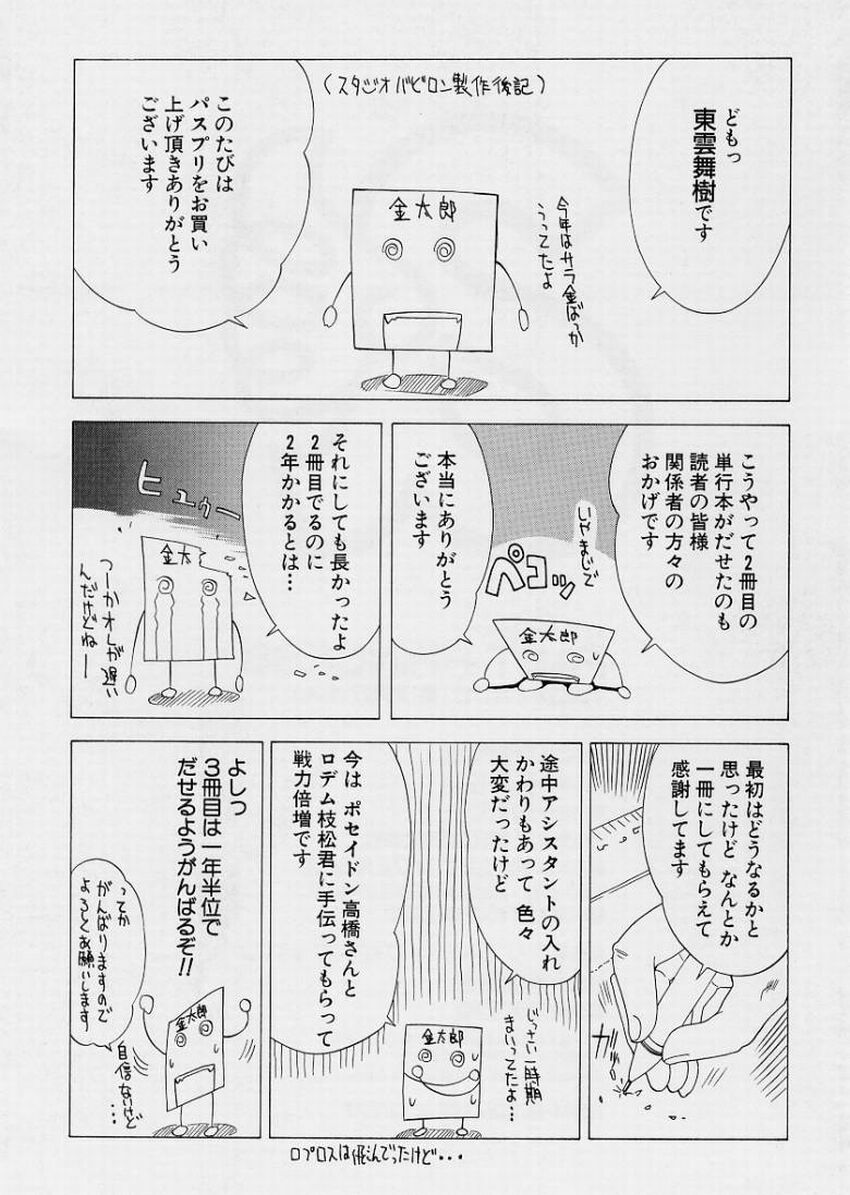 (スタジオバビロン製作後記)
どもっ
東雲舞樹です
今年はサラ金ばっか
うってたよ
金太郎
このたびは
パスプリをお買い
上げ頂きありがとう
ございます
こうやって2冊目の
単行本がだせたのも
読者の皆様
関係者の方々の
おかげです
いやまじで
ペコッ
金太郎
本当にありがとう
ございます
それにしても長かったよ
2冊目でるのに
2年かかるとは…
ヒュゥー
金太
つーかオレが遅い
んだけどねー
最初はどうなるかと
思ったけど なんとか
一冊にしてもらえて
感謝してます
ガッ
途中アシスタントの入れ
かわりもあって 色々
大変だったけど
じっさい一時期
まいってたよ…
金太郎
今は ポセイドン高橋さんと
ロデム枝松君に手伝ってもらって
戦力倍増です
よしっ
3冊目は一年半位で
だせるようがんばるぞ!!
金太郎
ってか
がんばりますので
よろしくお願いします
自信ないけど
…
ロプロスは飛んでったけど・・・